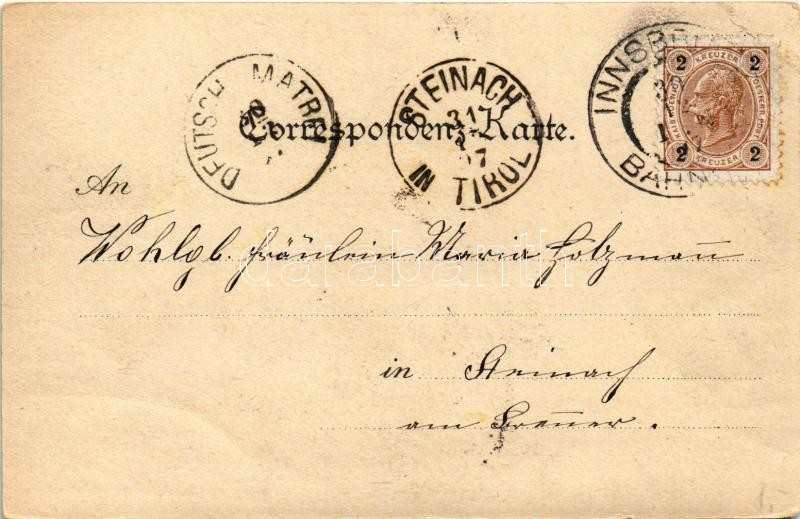 DEUTSCH MATREI
STEINACH
31
97
IN TIROL
INNSBR
BAHN
2 KREUZER 2
2 KREUZER 2
Correspondenz-Karte.
An
Wohlgb. Fräulein Maria Holzmann
darabanth
in Steinach
am Brenner.